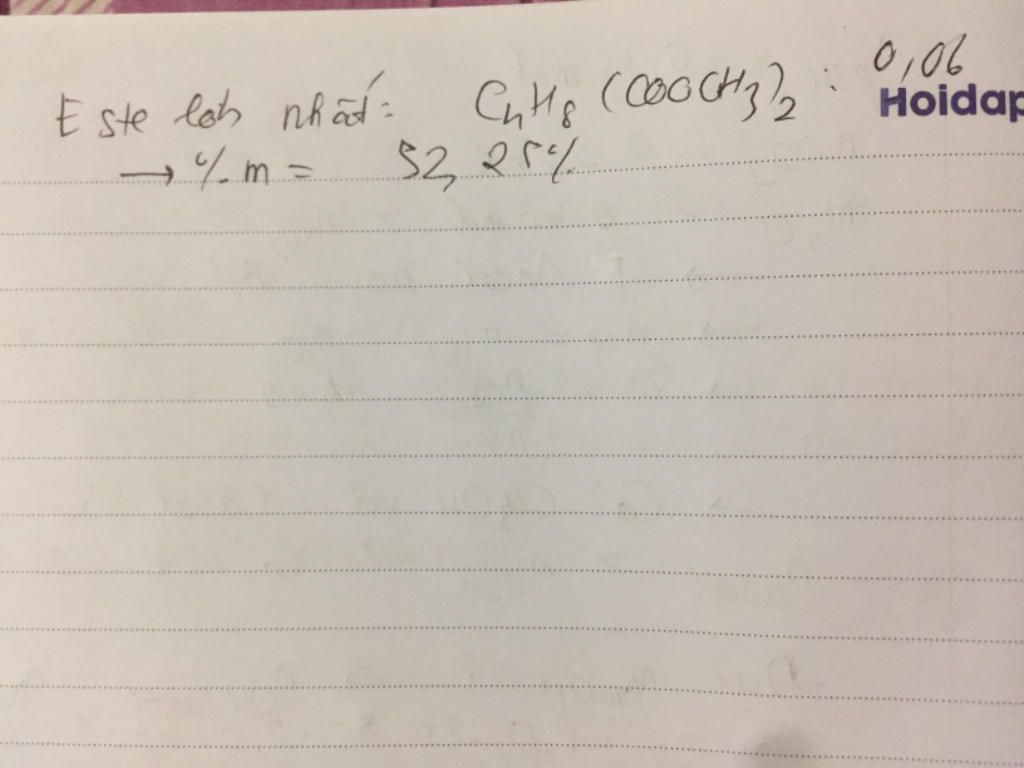 Este lớn nhất: C4H8 (COOCH3)2 : 0,06
Hoidap
→ % m = 52,25%